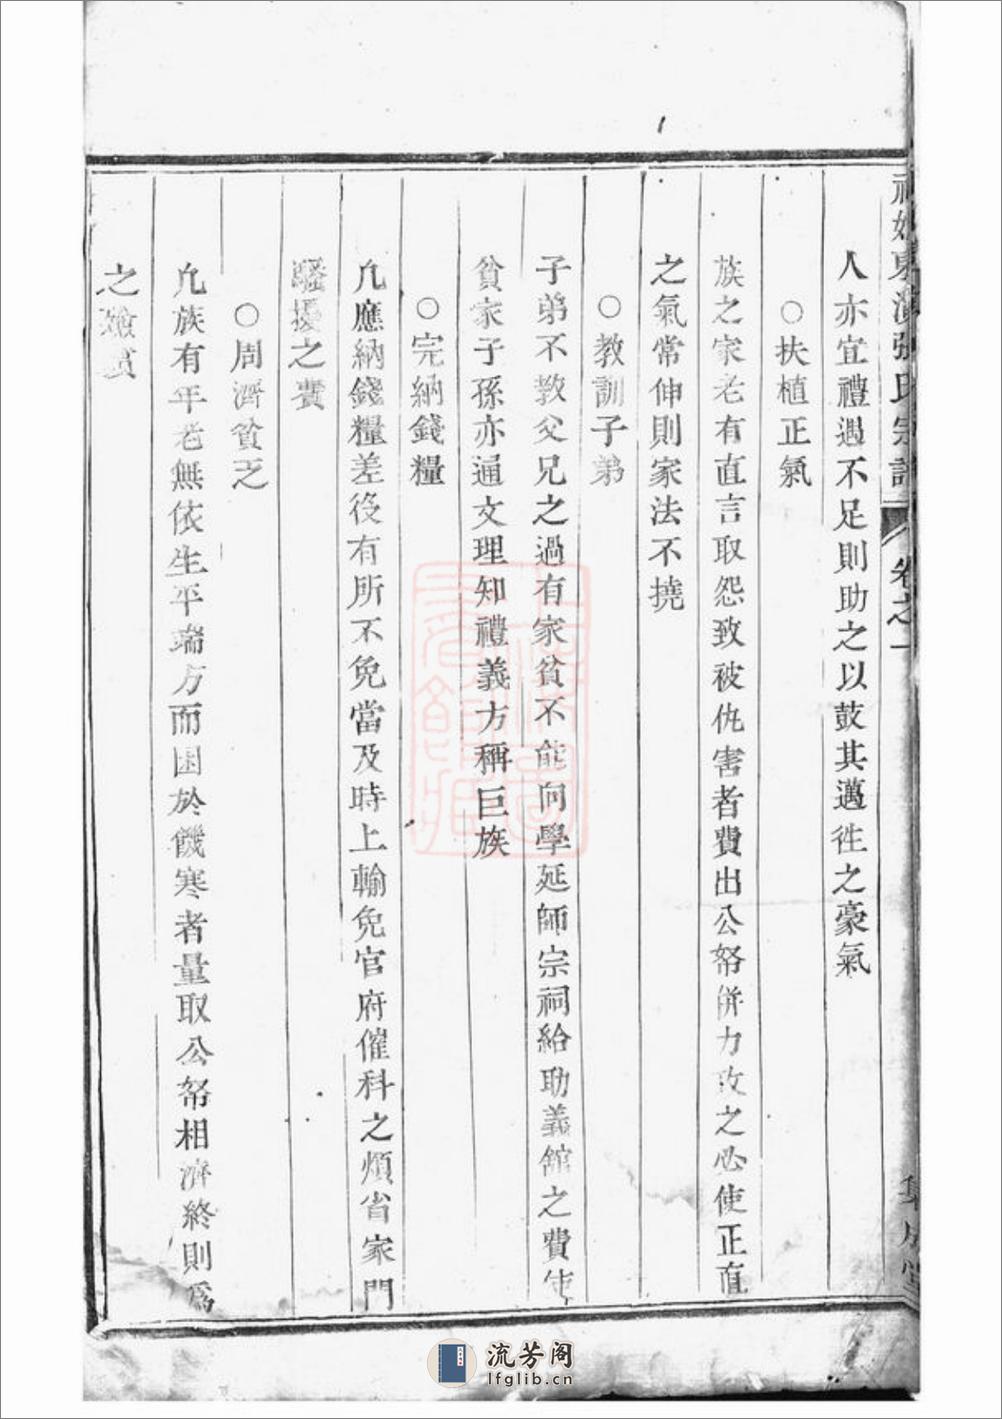 東 張氏宗譜 卷之一
人亦宜禮遇不足則助之以鼓其邁徃之豪氣
○扶植正氣
族之家老有直言取怨致被仇害者費出公帑併力攻之必使正直
之氣常伸則家法不撓
○教訓子弟
子弟不教父兄之過有家貧不能向學延師宗祠給助義舘之費使
貧家子孫亦通文理知禮義方稱巨族
○完納錢糧
凢應納錢糧差役有所不免當及時上輸免官府催科之煩省家門
騷擾之費
○周濟貧乏
凢族有年老無依生平端方而困於饑寒者量取公帑相濟終則爲
之殮
流芳阁
lfglib.cn